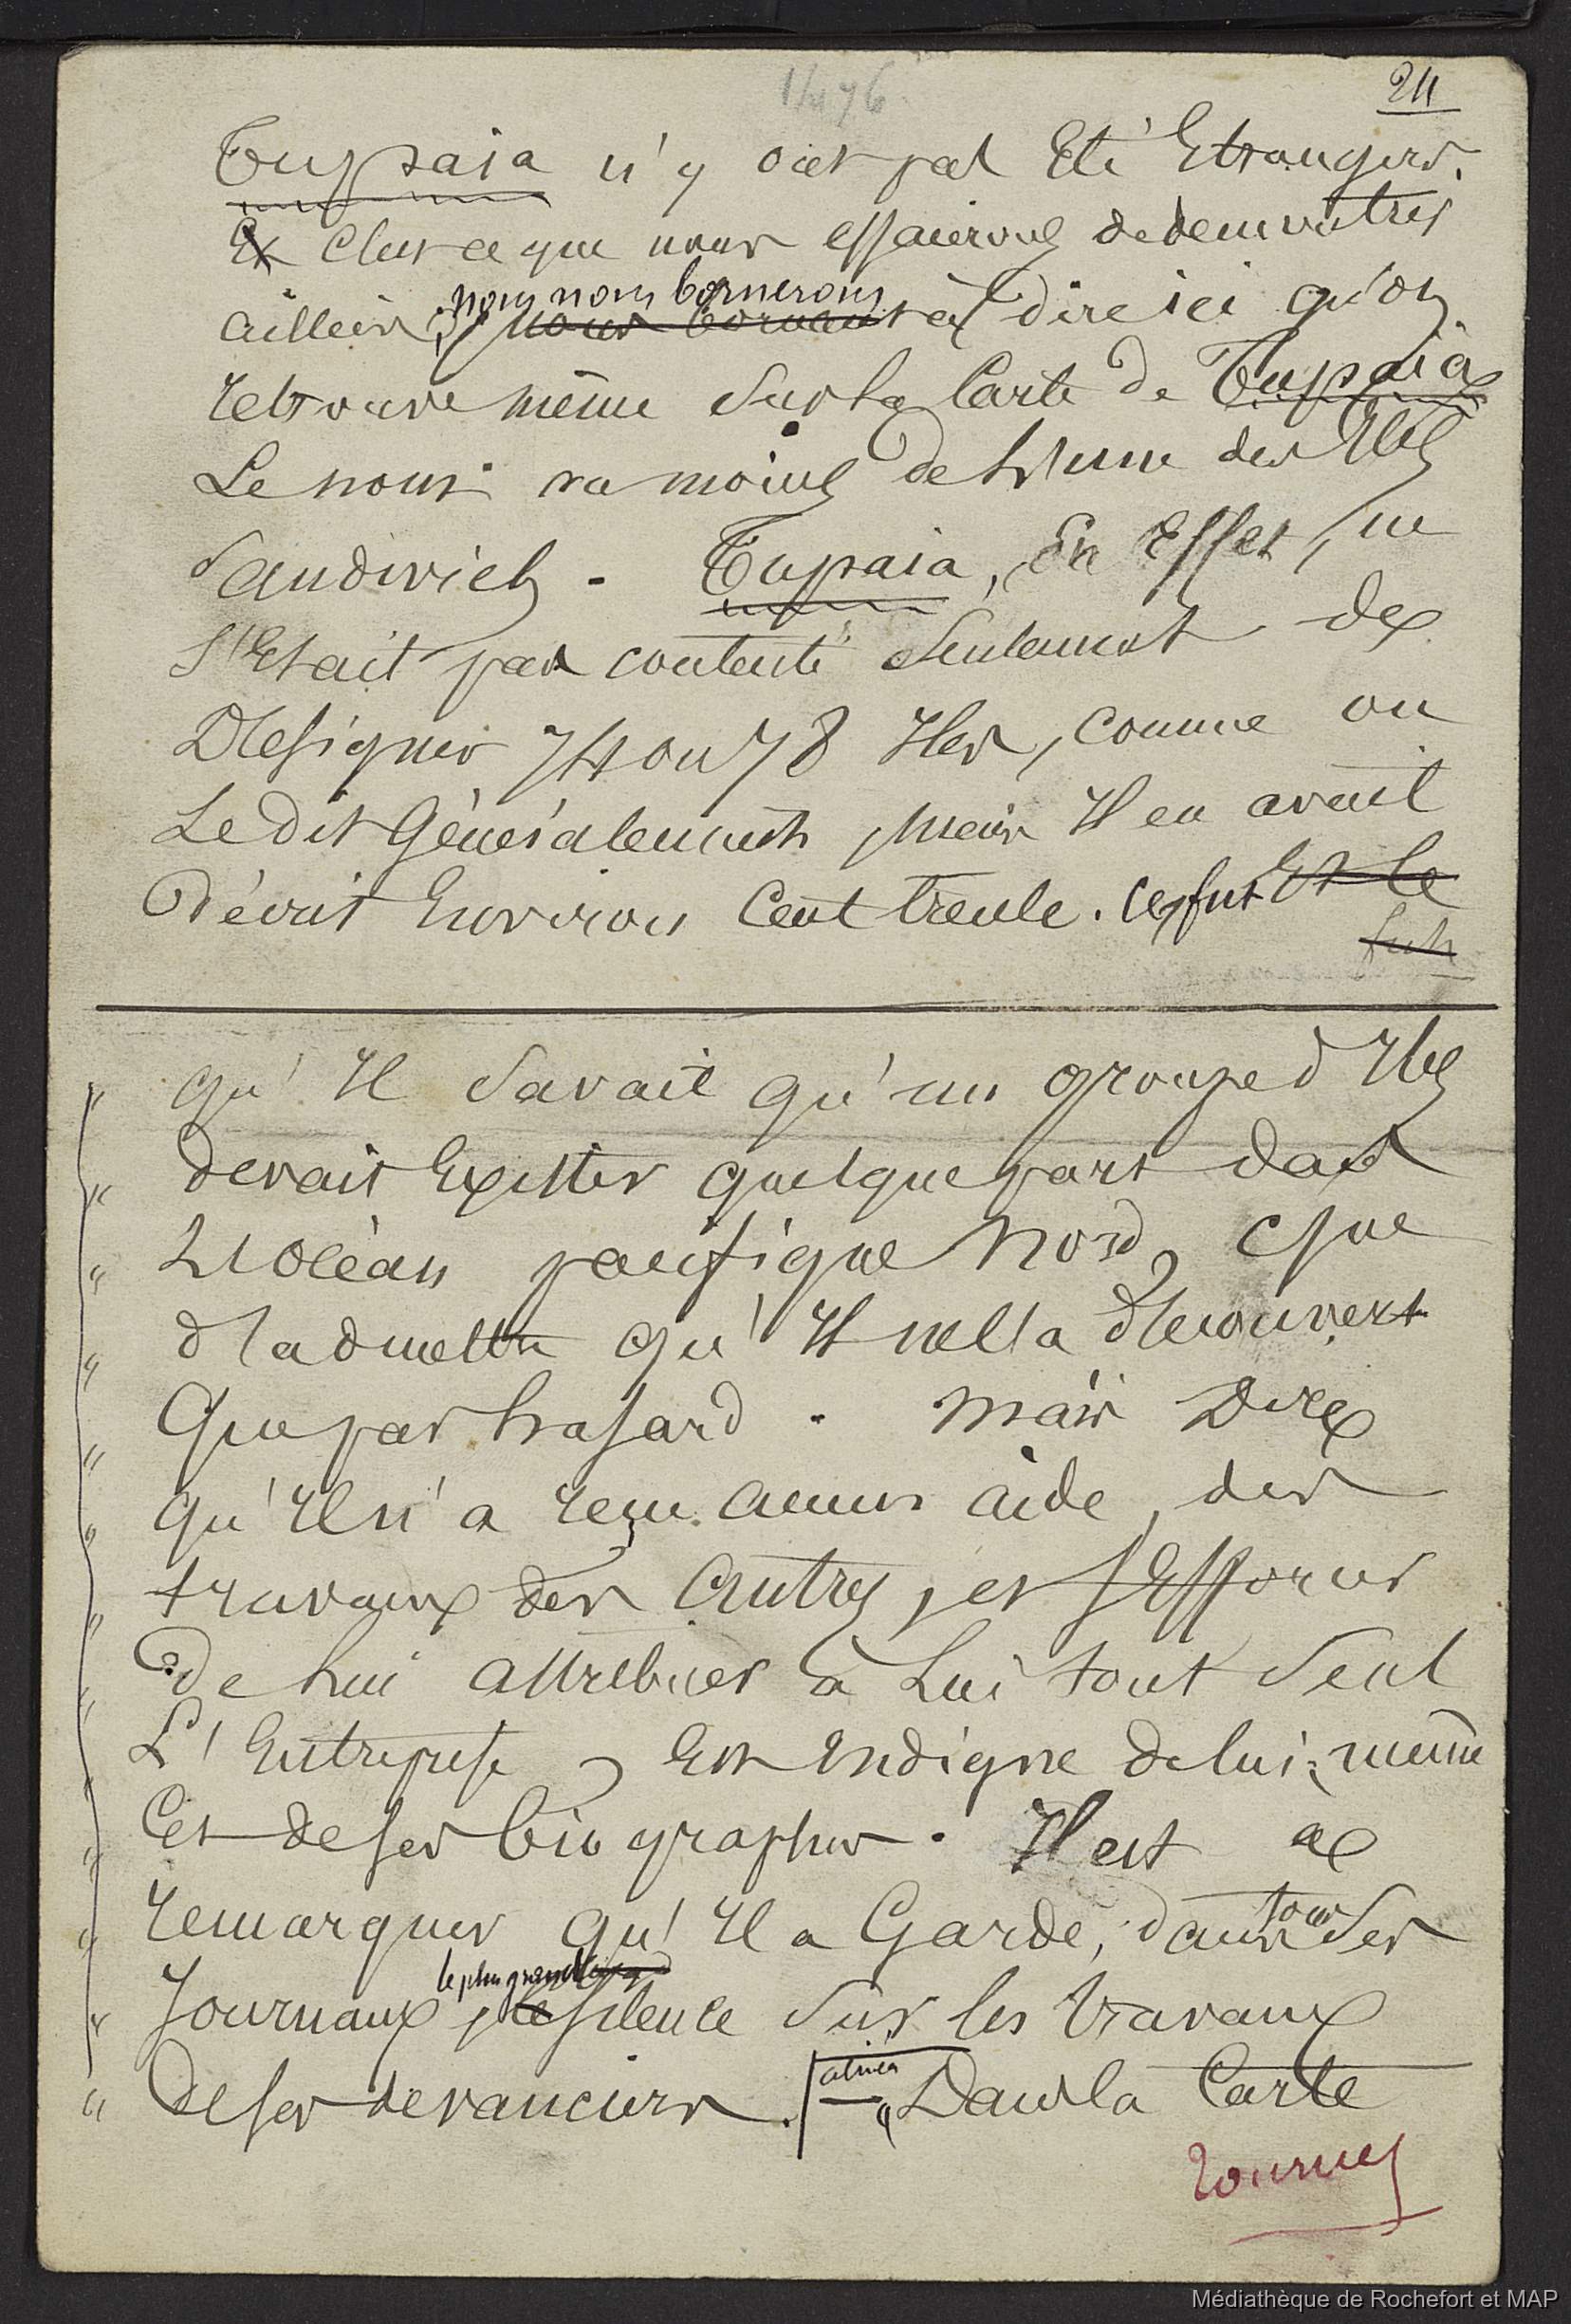 24
Tupaia n'y ont pas Eté Etrangers.
C'est ce que nous essaierons de demontrer
ailleurs; nous nous bornerons à dire ici qu'on
retrouve même sur la Carte de Tupaia
Le nom au moins de l'une des Iles
Sandwich. Tupaia, En Effet, ne
s'Etait pas contenté seulement de
Désigner 74 ou 78 Iles, comme on
Le dit Généralement, mais Il en avait
Décrit Environ Cent trente. Ce fut Et Ce
fut
qu'Il savait qu'un groupe d'Iles
devait Exister quelque part dans
L'océan pacifique Nord, que
d'admettre qu'Il ne l'a découvert
Que par hasard. Mais Dire
qu'Il n'a reçu aucune aide, des
travaux des Autres, et s'Efforcer
de lui attribuer à Lui tout Seul
L'Entreprise, Est Indigne de lui-même
Et de ses biographes. Il est à
remarquer qu'Il a Gardé, dans tous ses
Journaux, le plus grand silence sur les travaux
de ses devanciers. alinéa " Dans la Carte
Tournez
Médiathèque de Rochefort et MAP